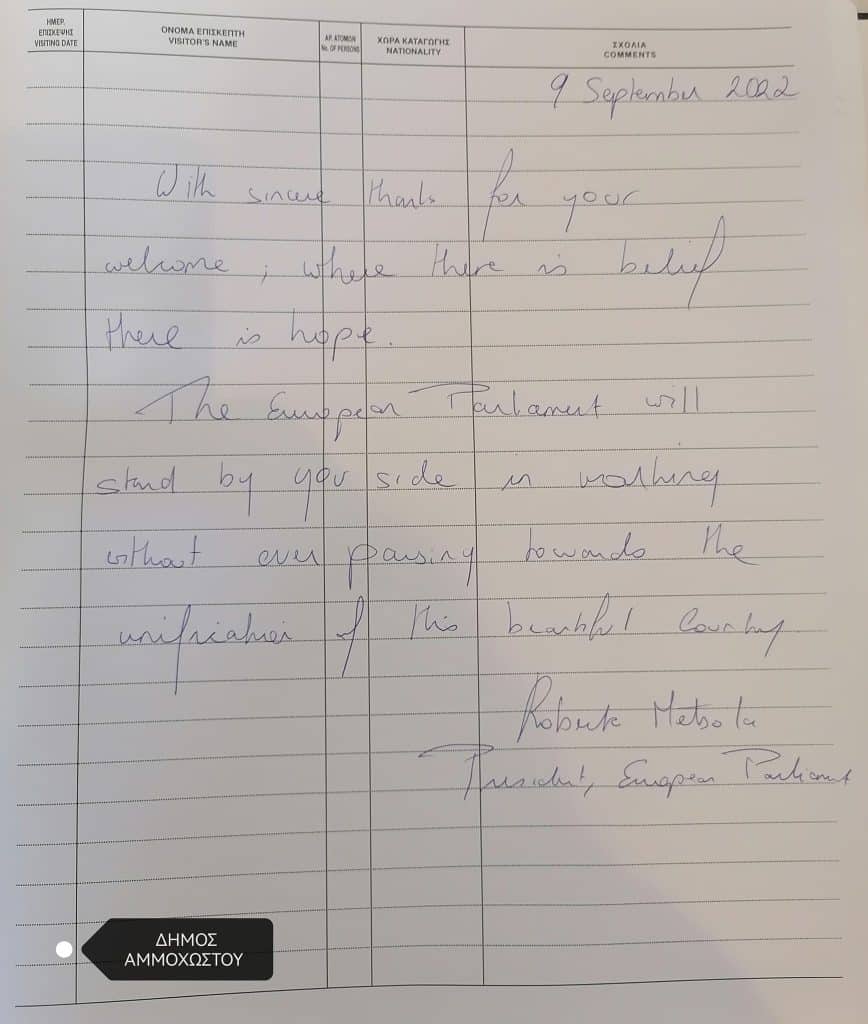 ΗΜΕΡ.
ΕΠΙΣΚΕΨΗΣ
VISITING DATE
ΟΝΟΜΑ ΕΠΙΣΚΕΠΤΗ
VISITOR'S NAME
ΑΡ. ΑΤΟΜΩΝ
No. OF PERSONS
ΧΩΡΑ ΚΑΤΑΓΩΓΗΣ
NATIONALITY
ΣΧΟΛΙΑ
COMMENTS
9 September 2022
With sincere thanks for your
welcome; where there is belief
there is hope.
The European Parliament will
stand by your side in working
without ever pausing towards the
unification of this beautiful Country
Roberta Metsola
President, European Parliament
ΔΗΜΟΣ
ΑΜΜΟΧΩΣΤΟΥ